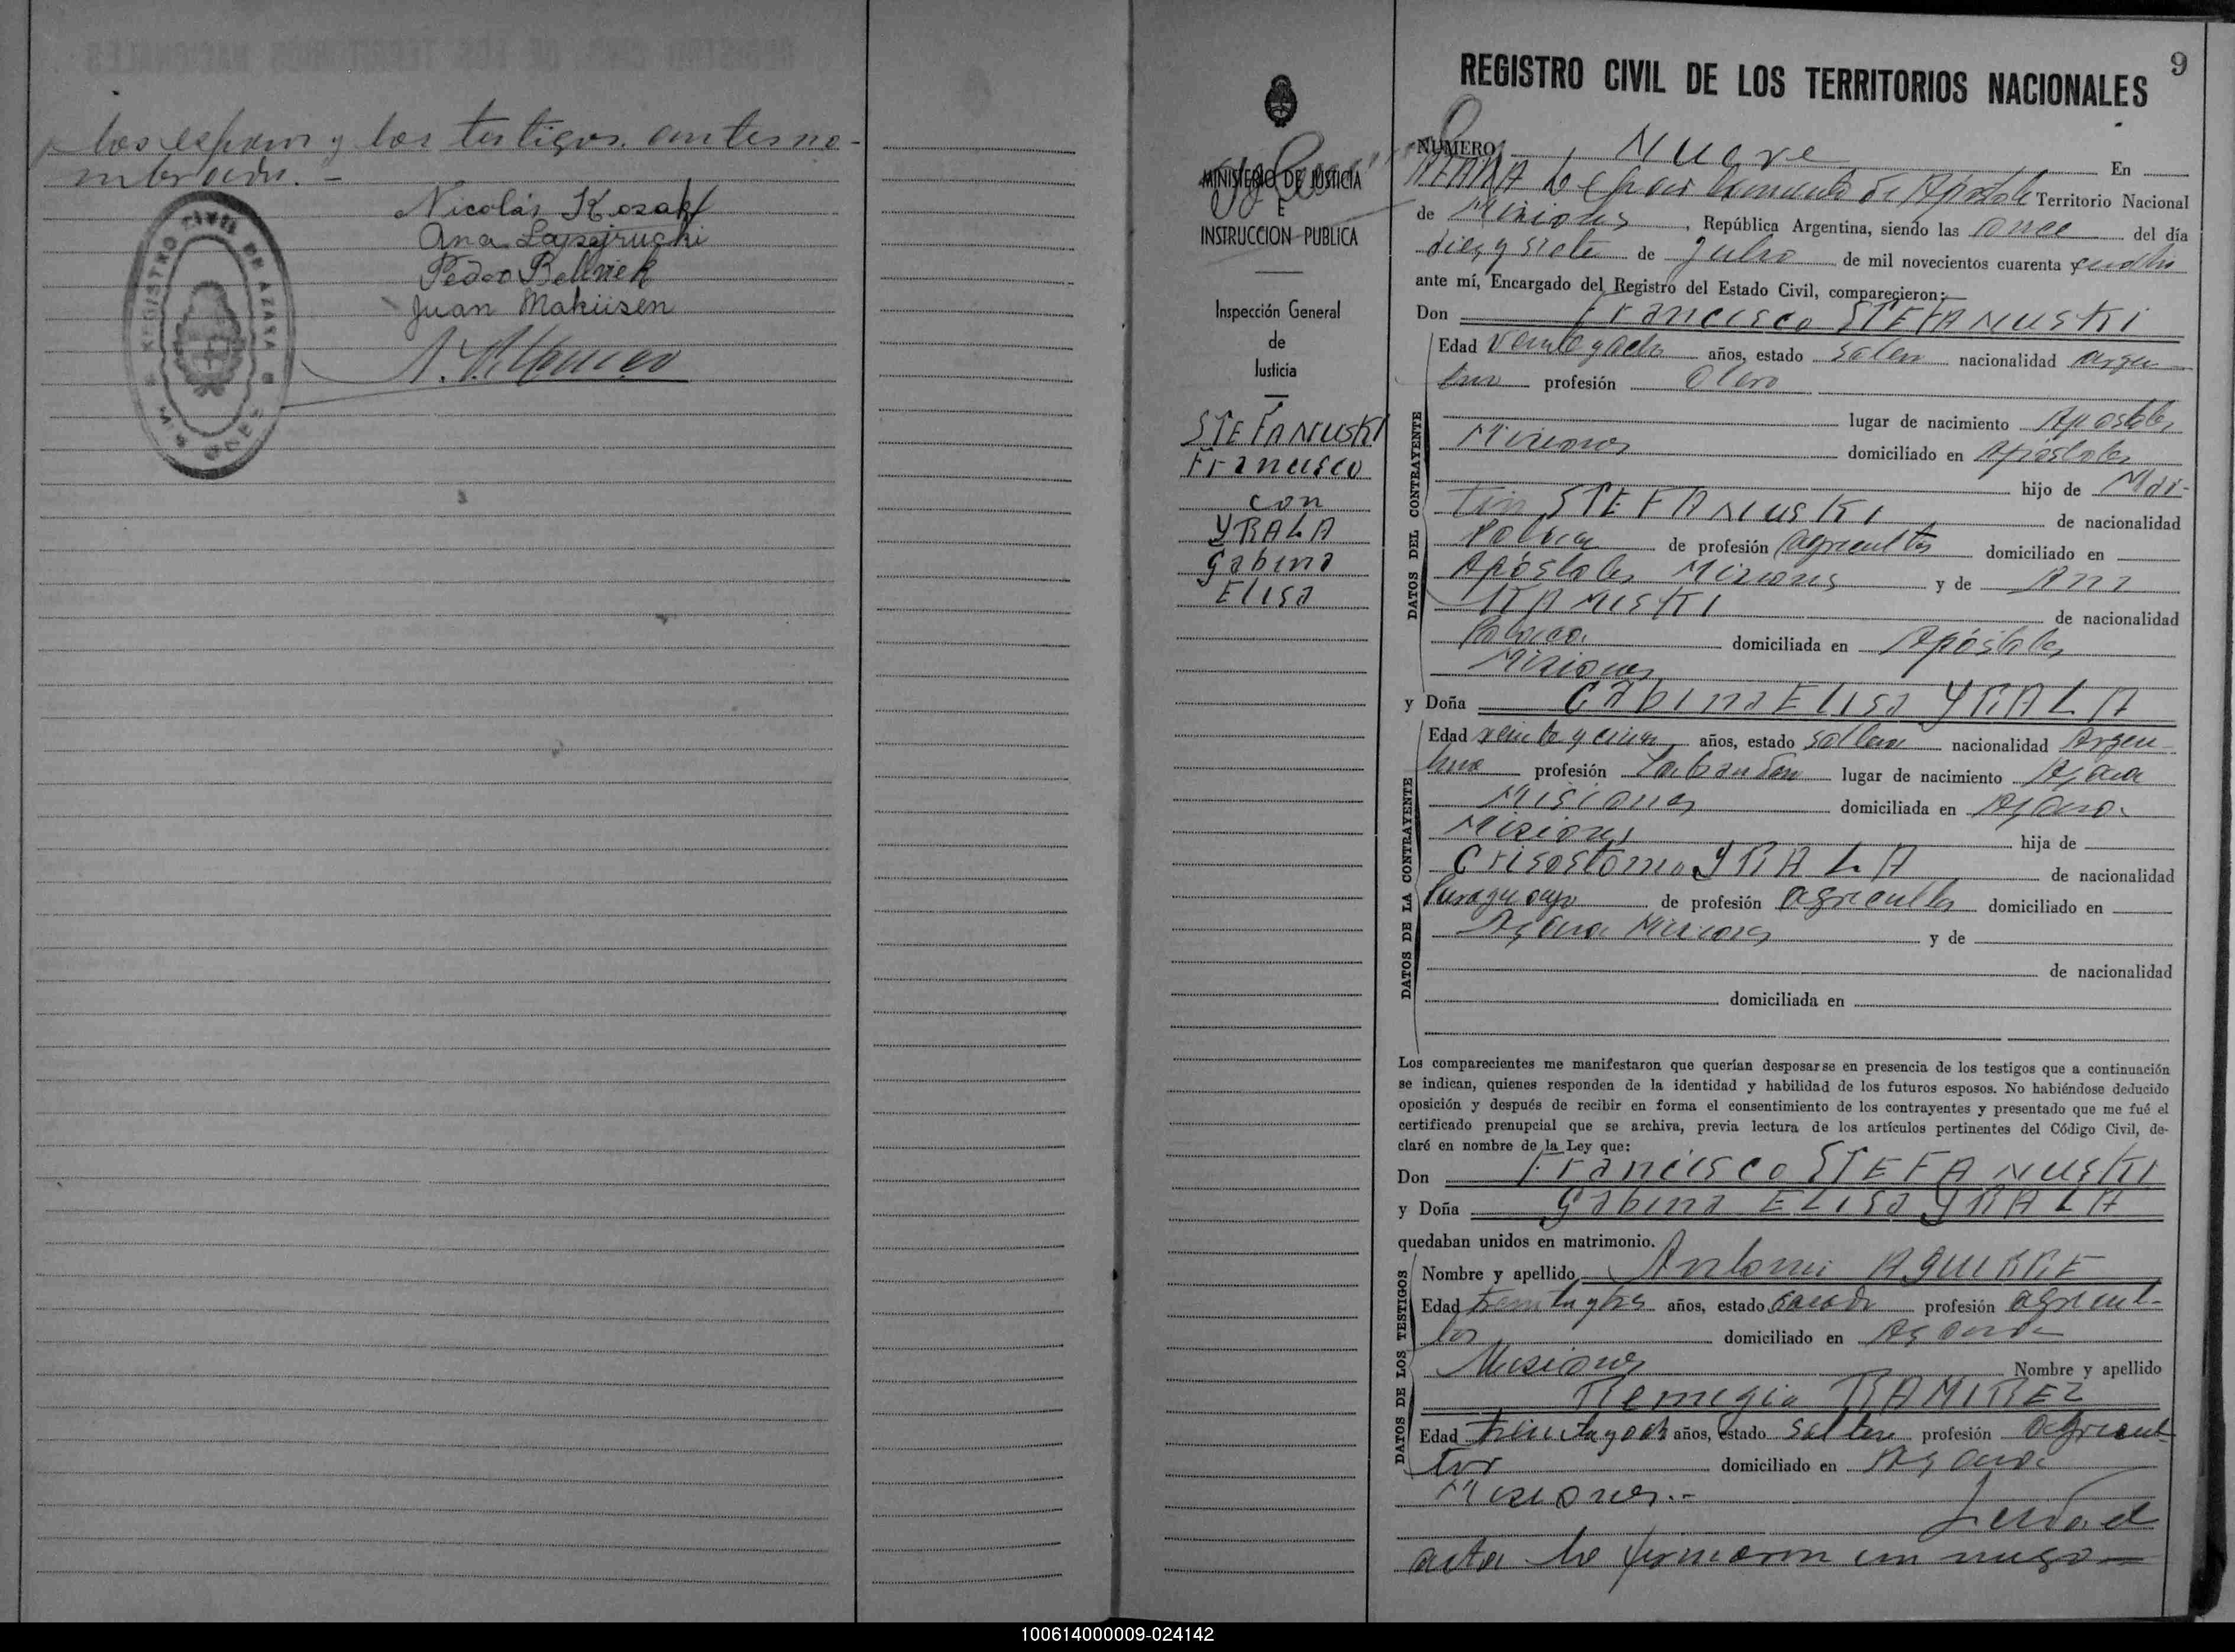 los esposos y los testigos antes no-
mbrados. -
Nicolás Kozak
Ana
Pedro
Juan
REGISTRO CIVIL DE AZARA
MISIONES
MINISTERIO DE JUSTICIA
E
INSTRUCCION PUBLICA
Inspección General
de
Justicia
STEFANUSKI
Francisco
con
YRALA
Gabina
Elisa
9
REGISTRO CIVIL DE LOS TERRITORIOS NACIONALES
NUMERO Nueve En
AZARA Departamento de Apóstoles Territorio Nacional
de Misiones, República Argentina, siendo las once del día
diez y siete de Julio de mil novecientos cuarenta y cuatro
ante mí, Encargado del Registro del Estado Civil, comparecieron:
Don Francisco STEFANUSKI
DATOS DEL CONTRAYENTE
Edad veinte y ocho años, estado soltero nacionalidad argen-
tino profesión
lugar de nacimiento Apóstoles
Misiones domiciliado en Apóstoles
hijo de Mar-
tin STEFANUSKI de nacionalidad
Polaca de profesión agricultor domiciliado en
Apóstoles Misiones y de Ana
KAMISKI de nacionalidad
Polaca domiciliada en Apóstoles
Misiones
y Doña Gabina Elisa YRALA
DATOS DE LA CONTRAYENTE
Edad veinte y cinco años, estado soltera nacionalidad Argen-
tina profesión lugar de nacimiento Azara
Misiones domiciliada en Azara
Misiones hija de
Crisostomo YRALA de nacionalidad
Paraguayo de profesión agricultor domiciliado en
Azara Misiones y de
de nacionalidad
domiciliada en
Los comparecientes me manifestaron que querían desposarse en presencia de los testigos que a continuación
se indican, quienes responden de la identidad y habilidad de los futuros esposos. No habiéndose deducido
oposición y después de recibir en forma el consentimiento de los contrayentes y presentado que me fué el
certificado prenupcial que se archiva, previa lectura de los artículos pertinentes del Código Civil, de-
claré en nombre de la Ley que:
Don Francisco STEFANUSKI
y Doña Gabina Elisa YRALA
quedaban unidos en matrimonio.
DATOS DE LOS TESTIGOS
Nombre y apellido Antonio AGUIRRE
Edad treinta y tres años, estado casado profesión agricul-
tor domiciliado en Azara
Misiones Nombre y apellido
Remigio RAMIREZ
Edad treinta y ocho años, estado soltero profesión agricul-
tor domiciliado en Azara
Misiones.-
Leida el
acta la firmaron con migo
100614000009-024142